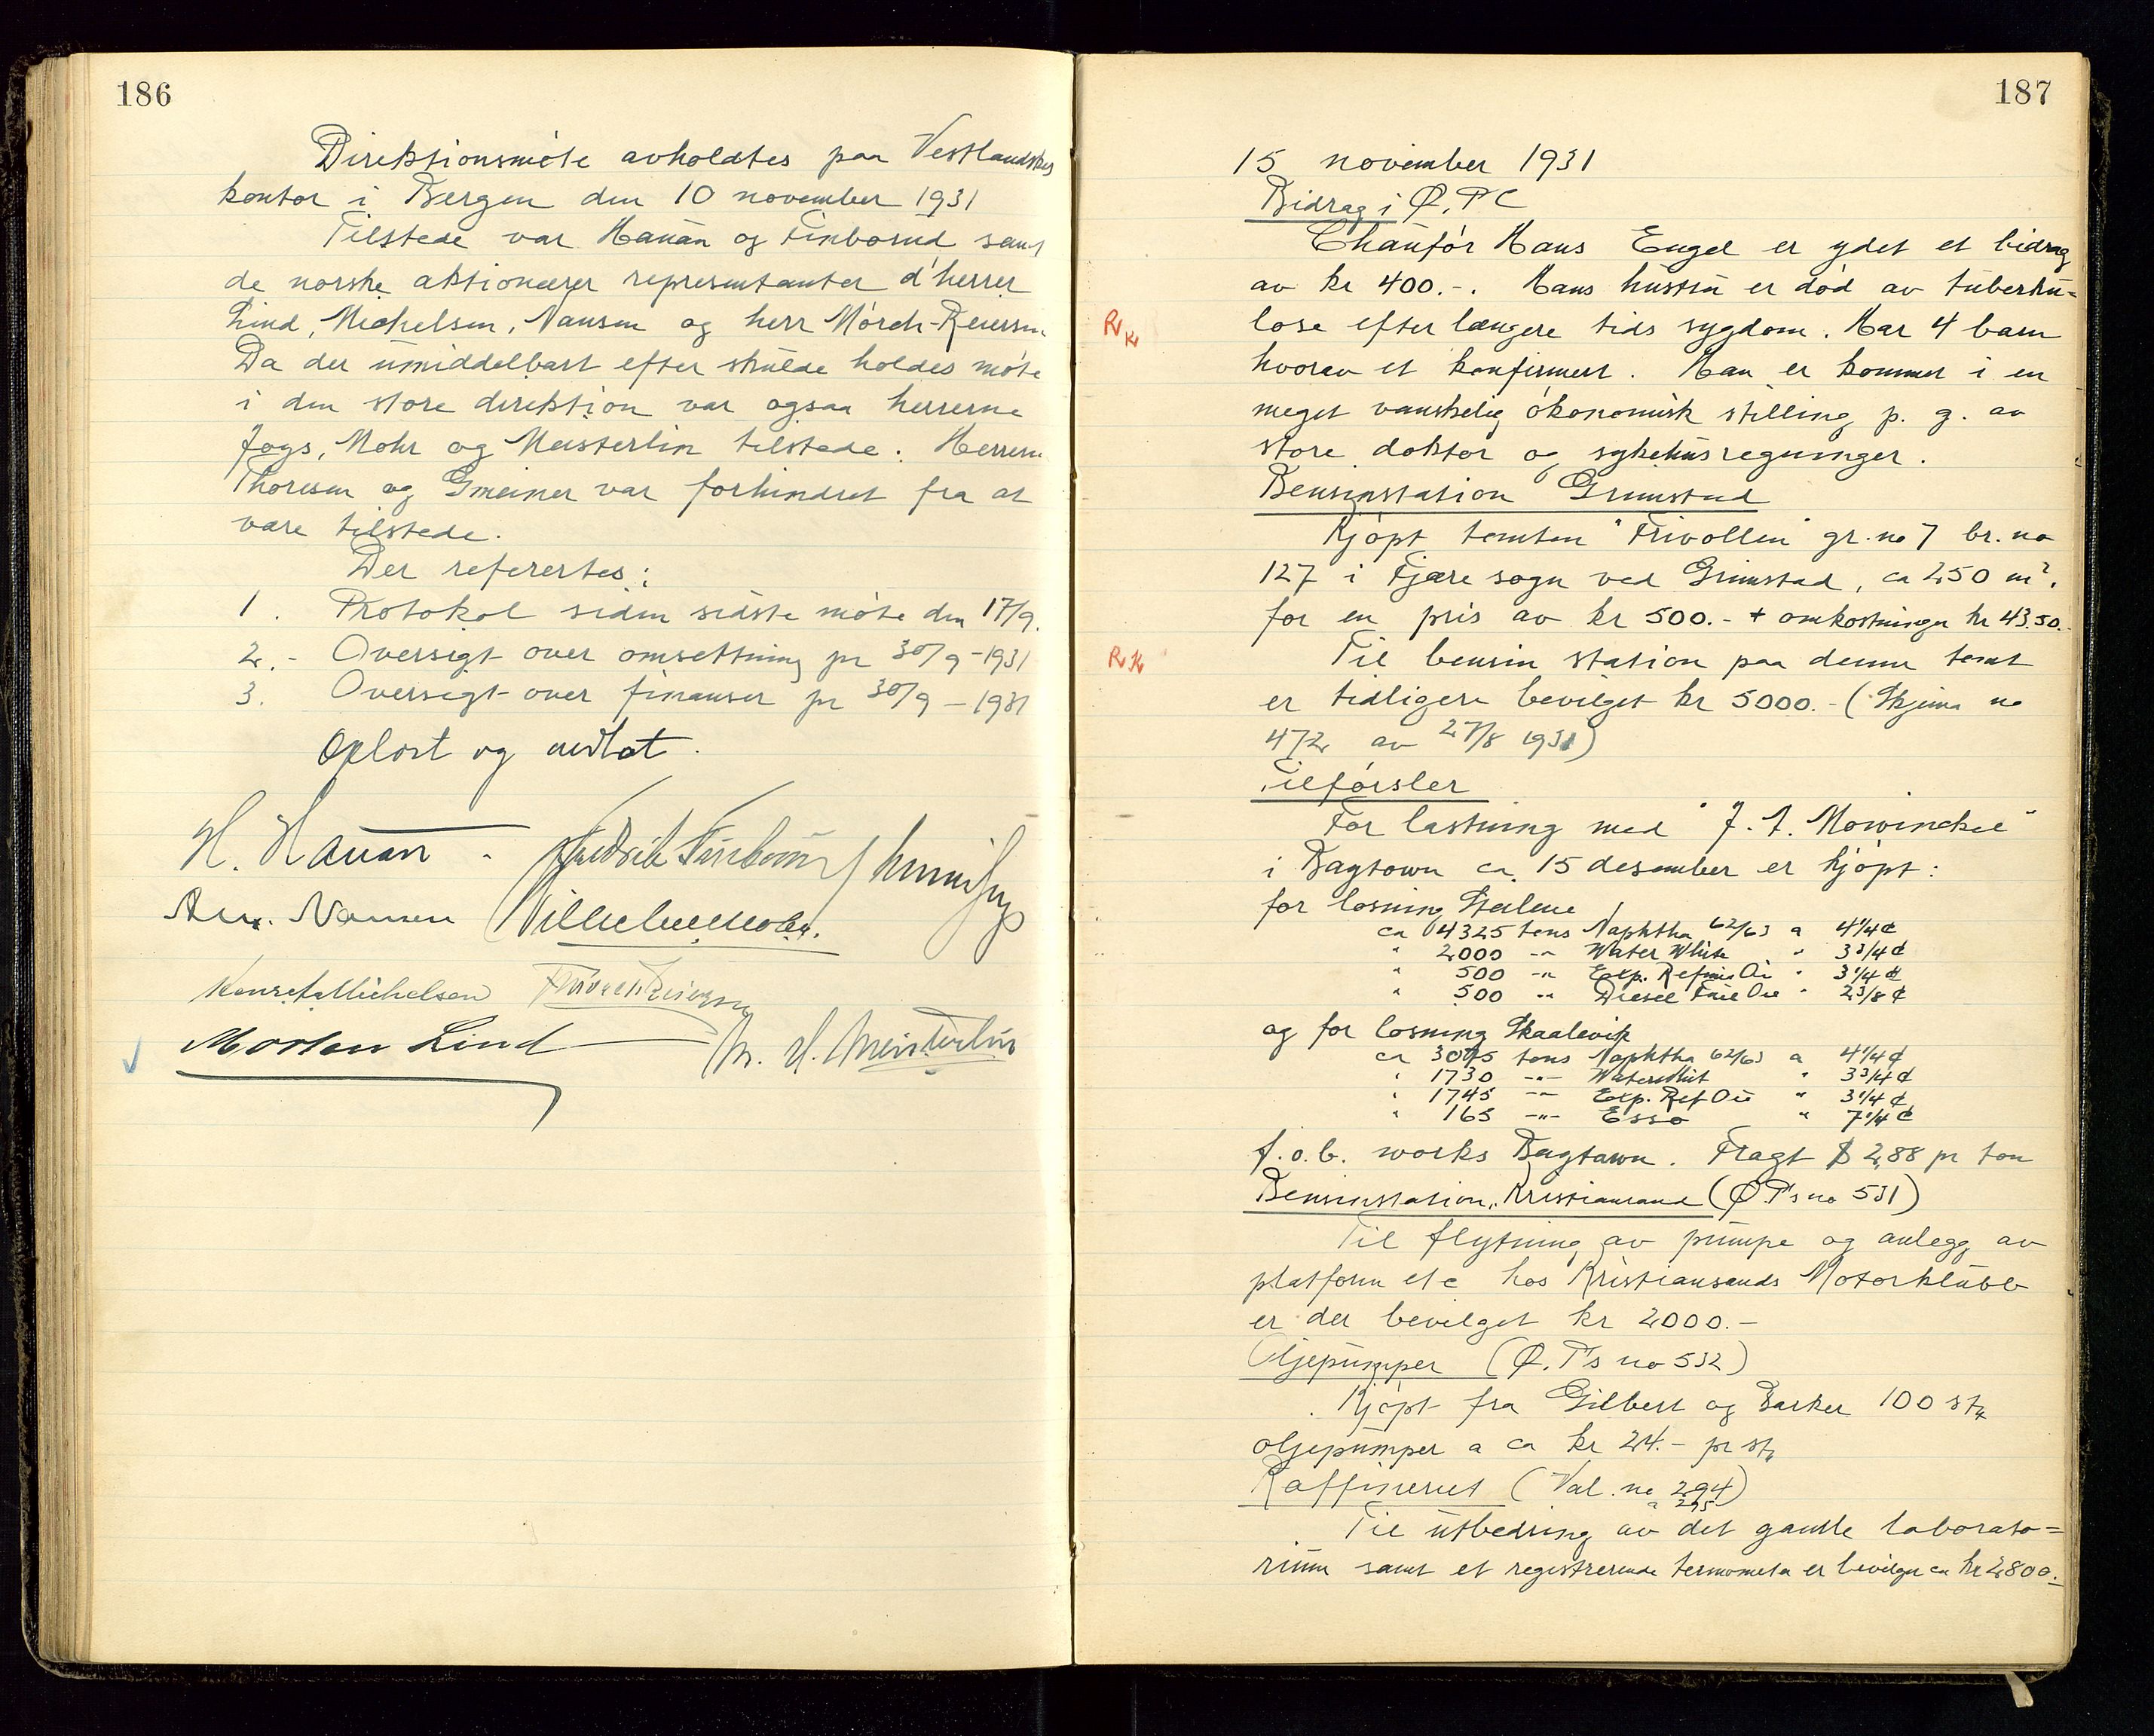 186
Direktionsmöte avholdtes paa Vestlandskes
kontor i Bergen den 10 november 1931
Tilstede var Hauan og Finborud samt
de norske aktionærer representanter d'herrer
Lind, Michelsen, Nansen og herr Mörch-Reiersen
Da der umiddelbart efter skulde holdes möte
i den store direktion var ogsaa herrerne
Joys, Mohr og Meisterlin tilstede. Herrerne
Thoresen og Gmeiner var forhindret fra at
være tilstede.
Der refertes:
1. Protokol siden sidste möte den 17/9.
2.- Oversigt over omsetning pr 30/9-1931
3. Oversigt over finanser pr 30/9-1931
Oplæst og vedtat.
H. Hauan
Wilhelm Mohr.
Konrad Michelsen
Morten Lind
187
15 november 1931
Bidrag i Ø.P.C
Chauför Hans Engel er ydet et bidrag
av kr 400.-. Hans hustru er död av tuberku=
lose efter længere tids sygdom. Har 4 barn
hvorav et konfirmert. Han er kommet i en
meget vanskelig ökonomisk stilling p. g. av
store doktor og sykehusregninger.
Bensinstation Grimstad
Kjöpt tomten "Frivollen" gr. no 7 br. no
127 i Fjære sogn ved Grimstad, ca 250 m².
for en pris av kr 500.- + omkostninger kr 43.50.
Til bensin station paa denne tomt
er tidligere bevilget kr 5000.- (Skjema no
472 av 27/8 1931)
Tilförsler
For lastning med "J. A. Mowinckel"
i Baytown ca. 15 desember er kjöpt:
for losning Steilene
ca 4325 tons Naphtha 62/63 a 4 1/4 ¢
" 2000 -"- Water White " 3 3/4 ¢
" 500 -"- Exp. Refined Oil " 3 1/4 ¢
" 500 -"- Diesel Fuel Oil " 2 3/8 ¢
og for losning Skaalevik
ca 3075 tons Naphtha 62/63 a 4 1/4 ¢
" 1730 -"- Waterwhit " 3 3/4 ¢
" 1745 -"- Exp. Ref Oil " 3 1/4 ¢
" 165 -"- Esso " 7 1/4 ¢
f.o.b. works Baytown. Fragt $ 2,88 pr ton
Bensinstation, Kristiansand (Ø.P's no 531)
Til flytning av pumpe og anlegg av
platform etc hos Kristiansands Motorklubb
er der bevilget kr 2000.-
Oljepumper (Ø.P's no 532)
Kjöpt fra Gilbert og Barker 100 stk
oljepumper a ca kr 24.- pr stk
Raffineriet (Val. no 294)
" 295
Til utbedring av det gamle laborato=
rium samt et registrerende termometer er bevilget ca kr 2800.-